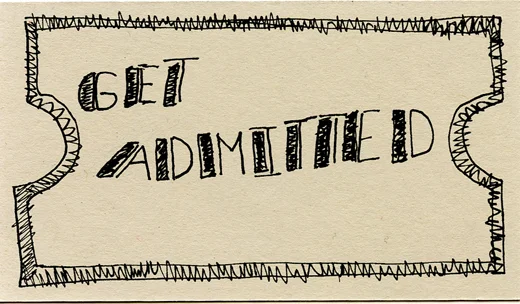 GET
ADMITTED